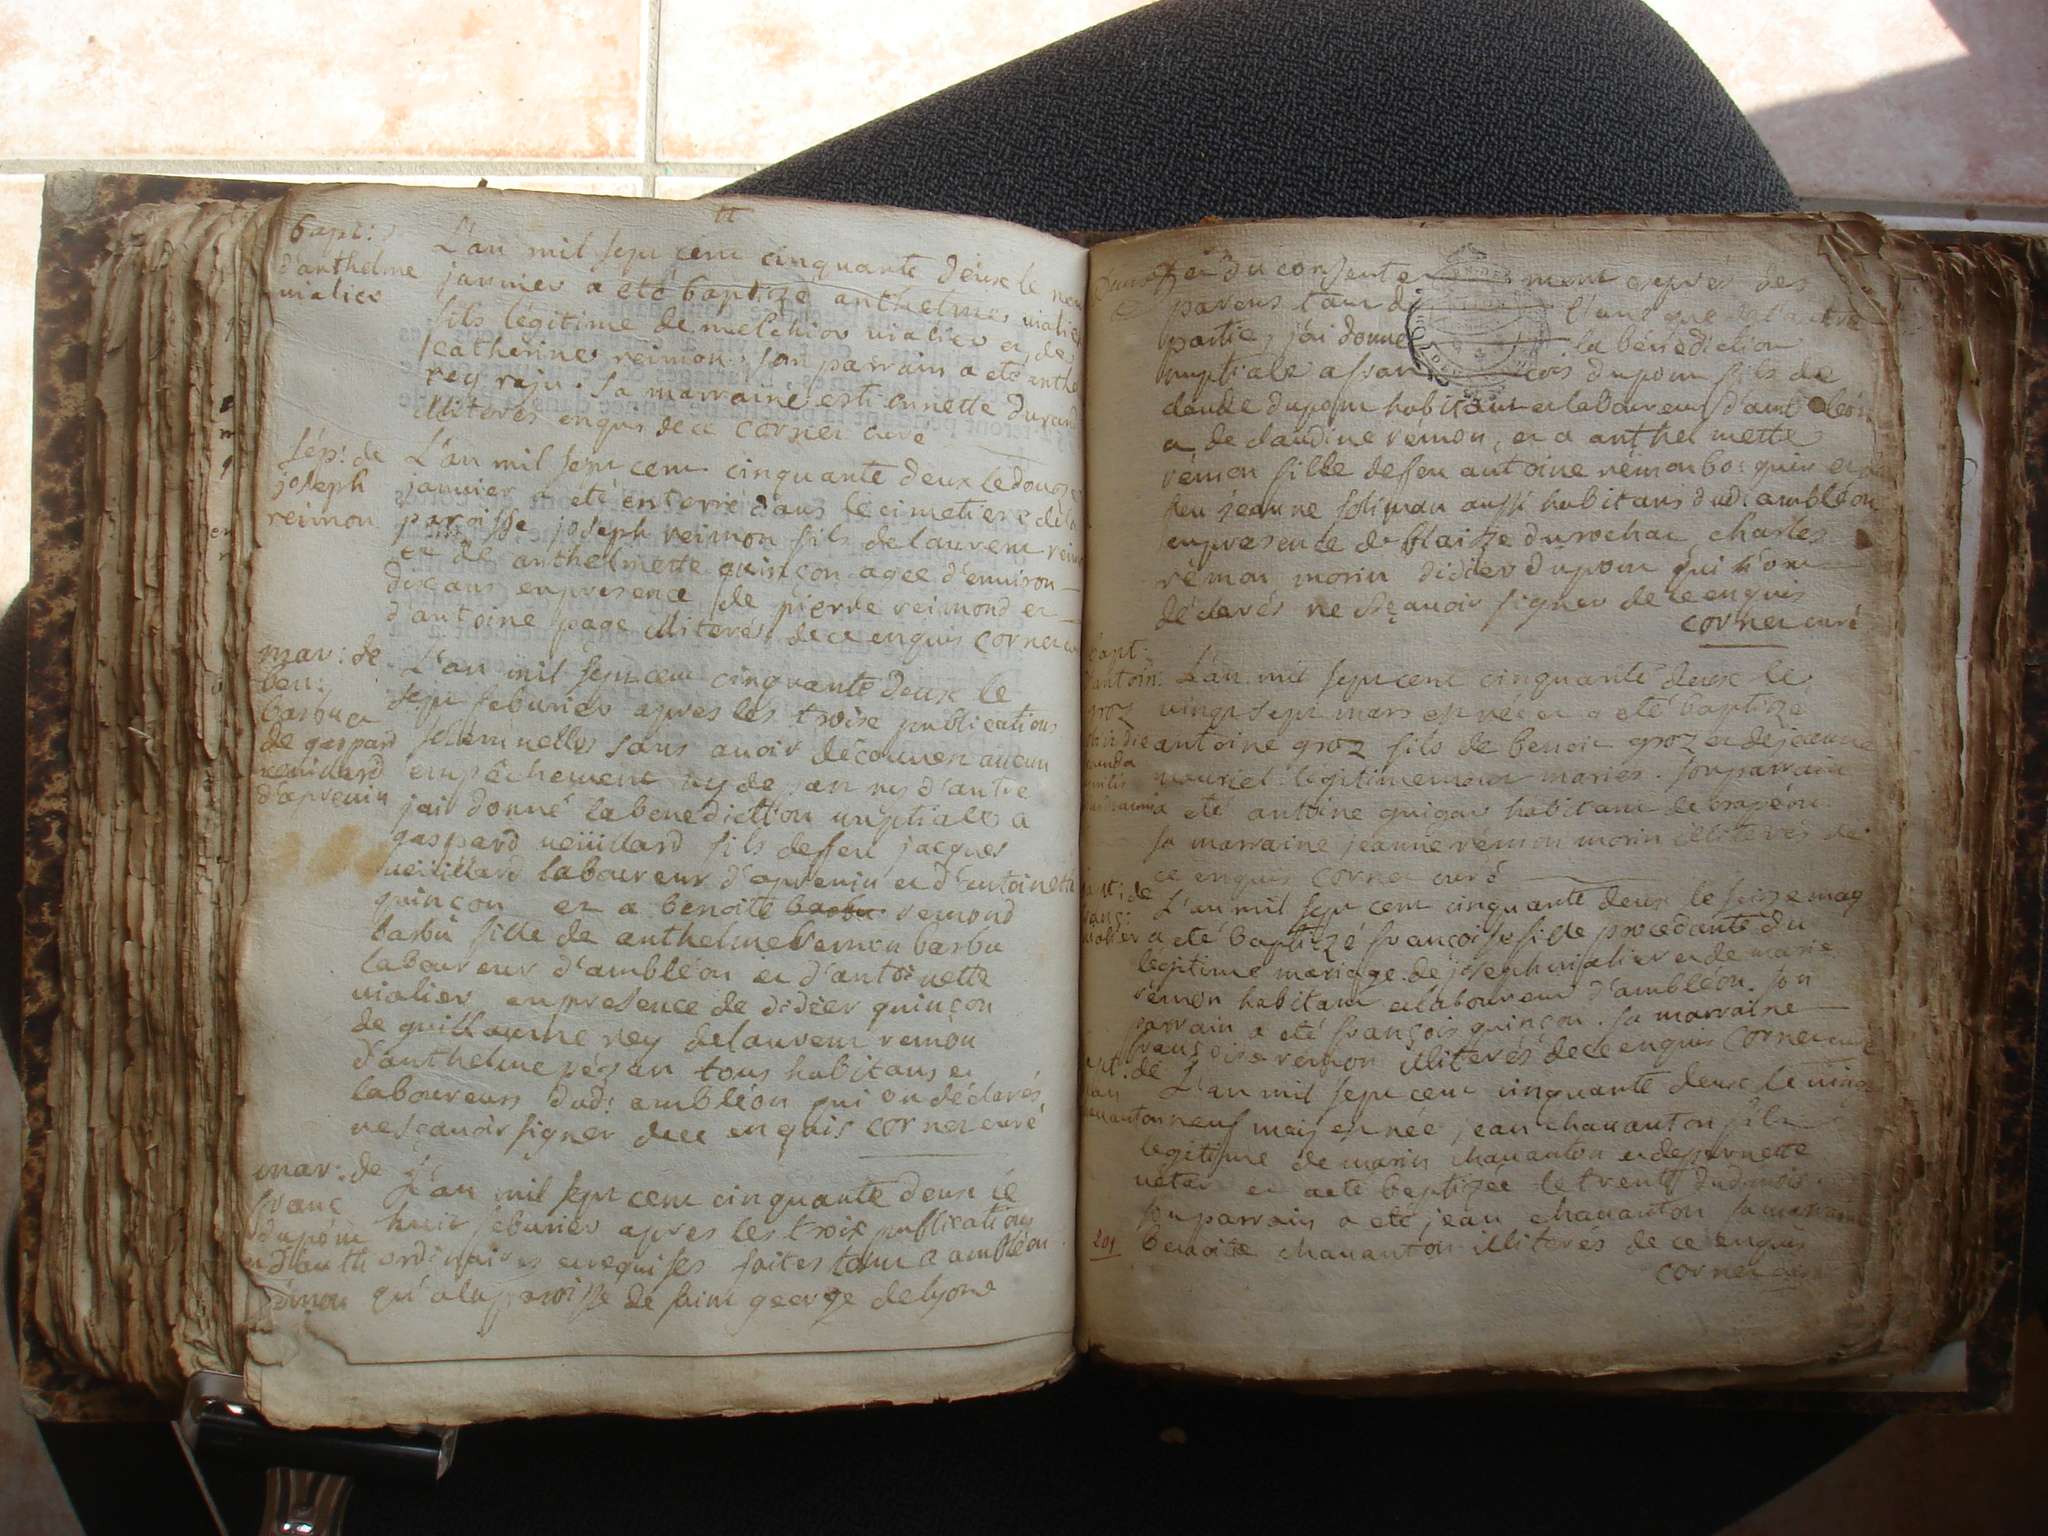 bapt:
d'anthelme
vialier
L'an mil sept cent cinquante deux le neuf
janvier a eté baptizé anthelmes vialier
fils légitime de melchior vialier et de
catherine reimon. son parrain a eté anthe
rey raju. sa marraine est annette durand
illiterés enquis de ce cornet curé
sép: de
joseph
reimon
L'an mil sept cent cinquante deux le douze
janvier a eté enterré dans le cimetiere de la
paroisse joseph reimon fils de laurent reimon
et de anthelmette quinçon agée d'environ
dix ans en presence de pierre reimond et
d'antoine page illiterés de ce enquis cornet
mar: de
ben:
barbu et
de gaspard
veüillard
d'aprenin
L'an mil sept cent cinquante deux le
sept feburier apres les trois publications
solemnelles sans avoir découvert aucun
empêchement ny de part ny d'autre
jai donné la benediction nuptiale a
gaspard veüillard fils deffeu jacques
veüillard laboureur d'aprenin et d'antoinette
quinçon et a benoite barbu remond
barbu fille de anthelme remon barbu
laboureur d'ambléon et d'antoinette
vialier en presence de didier quinçon
de guillaume rey de laurent remon
d'anthelme pésan tous habitans et
laboureurs dud: ambléon qui on déclarés
ne sçavoir signer de ce enquis cornet curé
mar: de
franc
dupom
et d'anth
rémon
L'an mil sept cent cinquante deux le
huit feburier apres les troix publications
ordinaires et requises faites tant a ambléon
qu'a la paroisse de saint george de lyon
et du consente ment exprés des
parens tant d l'une que de l'autre
partie, j'ai donné la bénédiction
nuptiale a fran çois dupom fils de
claude dupom habitant et laboureur d'ambléon
et de claudine rémon, et a anthelmette
rémon fille deffeu antoine rémon bosquin et de
feu jeanne soliman aussi habitans dud: ambléon
en presence de blaise durochat charles
rémon morin didier dupom qui n'on
déclarés ne sçavoir signer de ce enquis
cornet curé
bapt:
d'antoin:
groz
L'an mil sept cent cinquante deux le
vingt sept mars est née et a eté baptize
antoine groz fils de benoit groz et de jeanne
mouriel légitimement mariés. son parrain
a eté antoine guigas habitant
sa marraine jeanne rémon morin illiterés de
ce enquis cornet curé
bapt: de
franç:
vialier
L'an mil sept cent cinquante deux le seize may
a eté baptizé françoise fille procedante du
légitime mariage de joseph vialier et de marie
rémon habitant et laboureur d'ambléon. son
parrain a eté françois quinçon. sa marraine
françoise remon illiterés de ce enquis cornet curé
bapt: de
jean
chavanton
L'an mil sept cent cinquante deux le vingt
neuf may est née jean chavanton fils
legitime de marin chavanton et de pernette
et a eté baptizée le trente dud mois.
son parrain a eté jean chavanton sa marraine
201
benoite chavanton illiterés de ce enquis
cornet curé